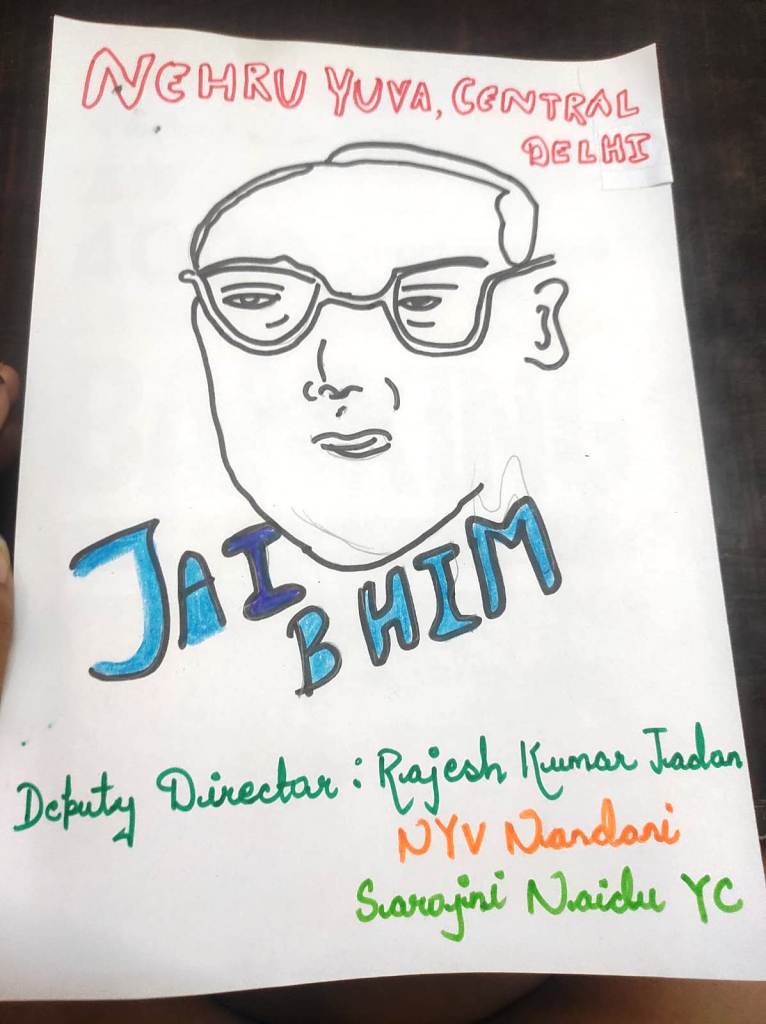 NEHRU YUVA, CENTRAL
DELHI
JAI
BHIM
Deputy Director : Rajesh Kumar Jadan
NYV Nandani
Sarojini Naidu YC